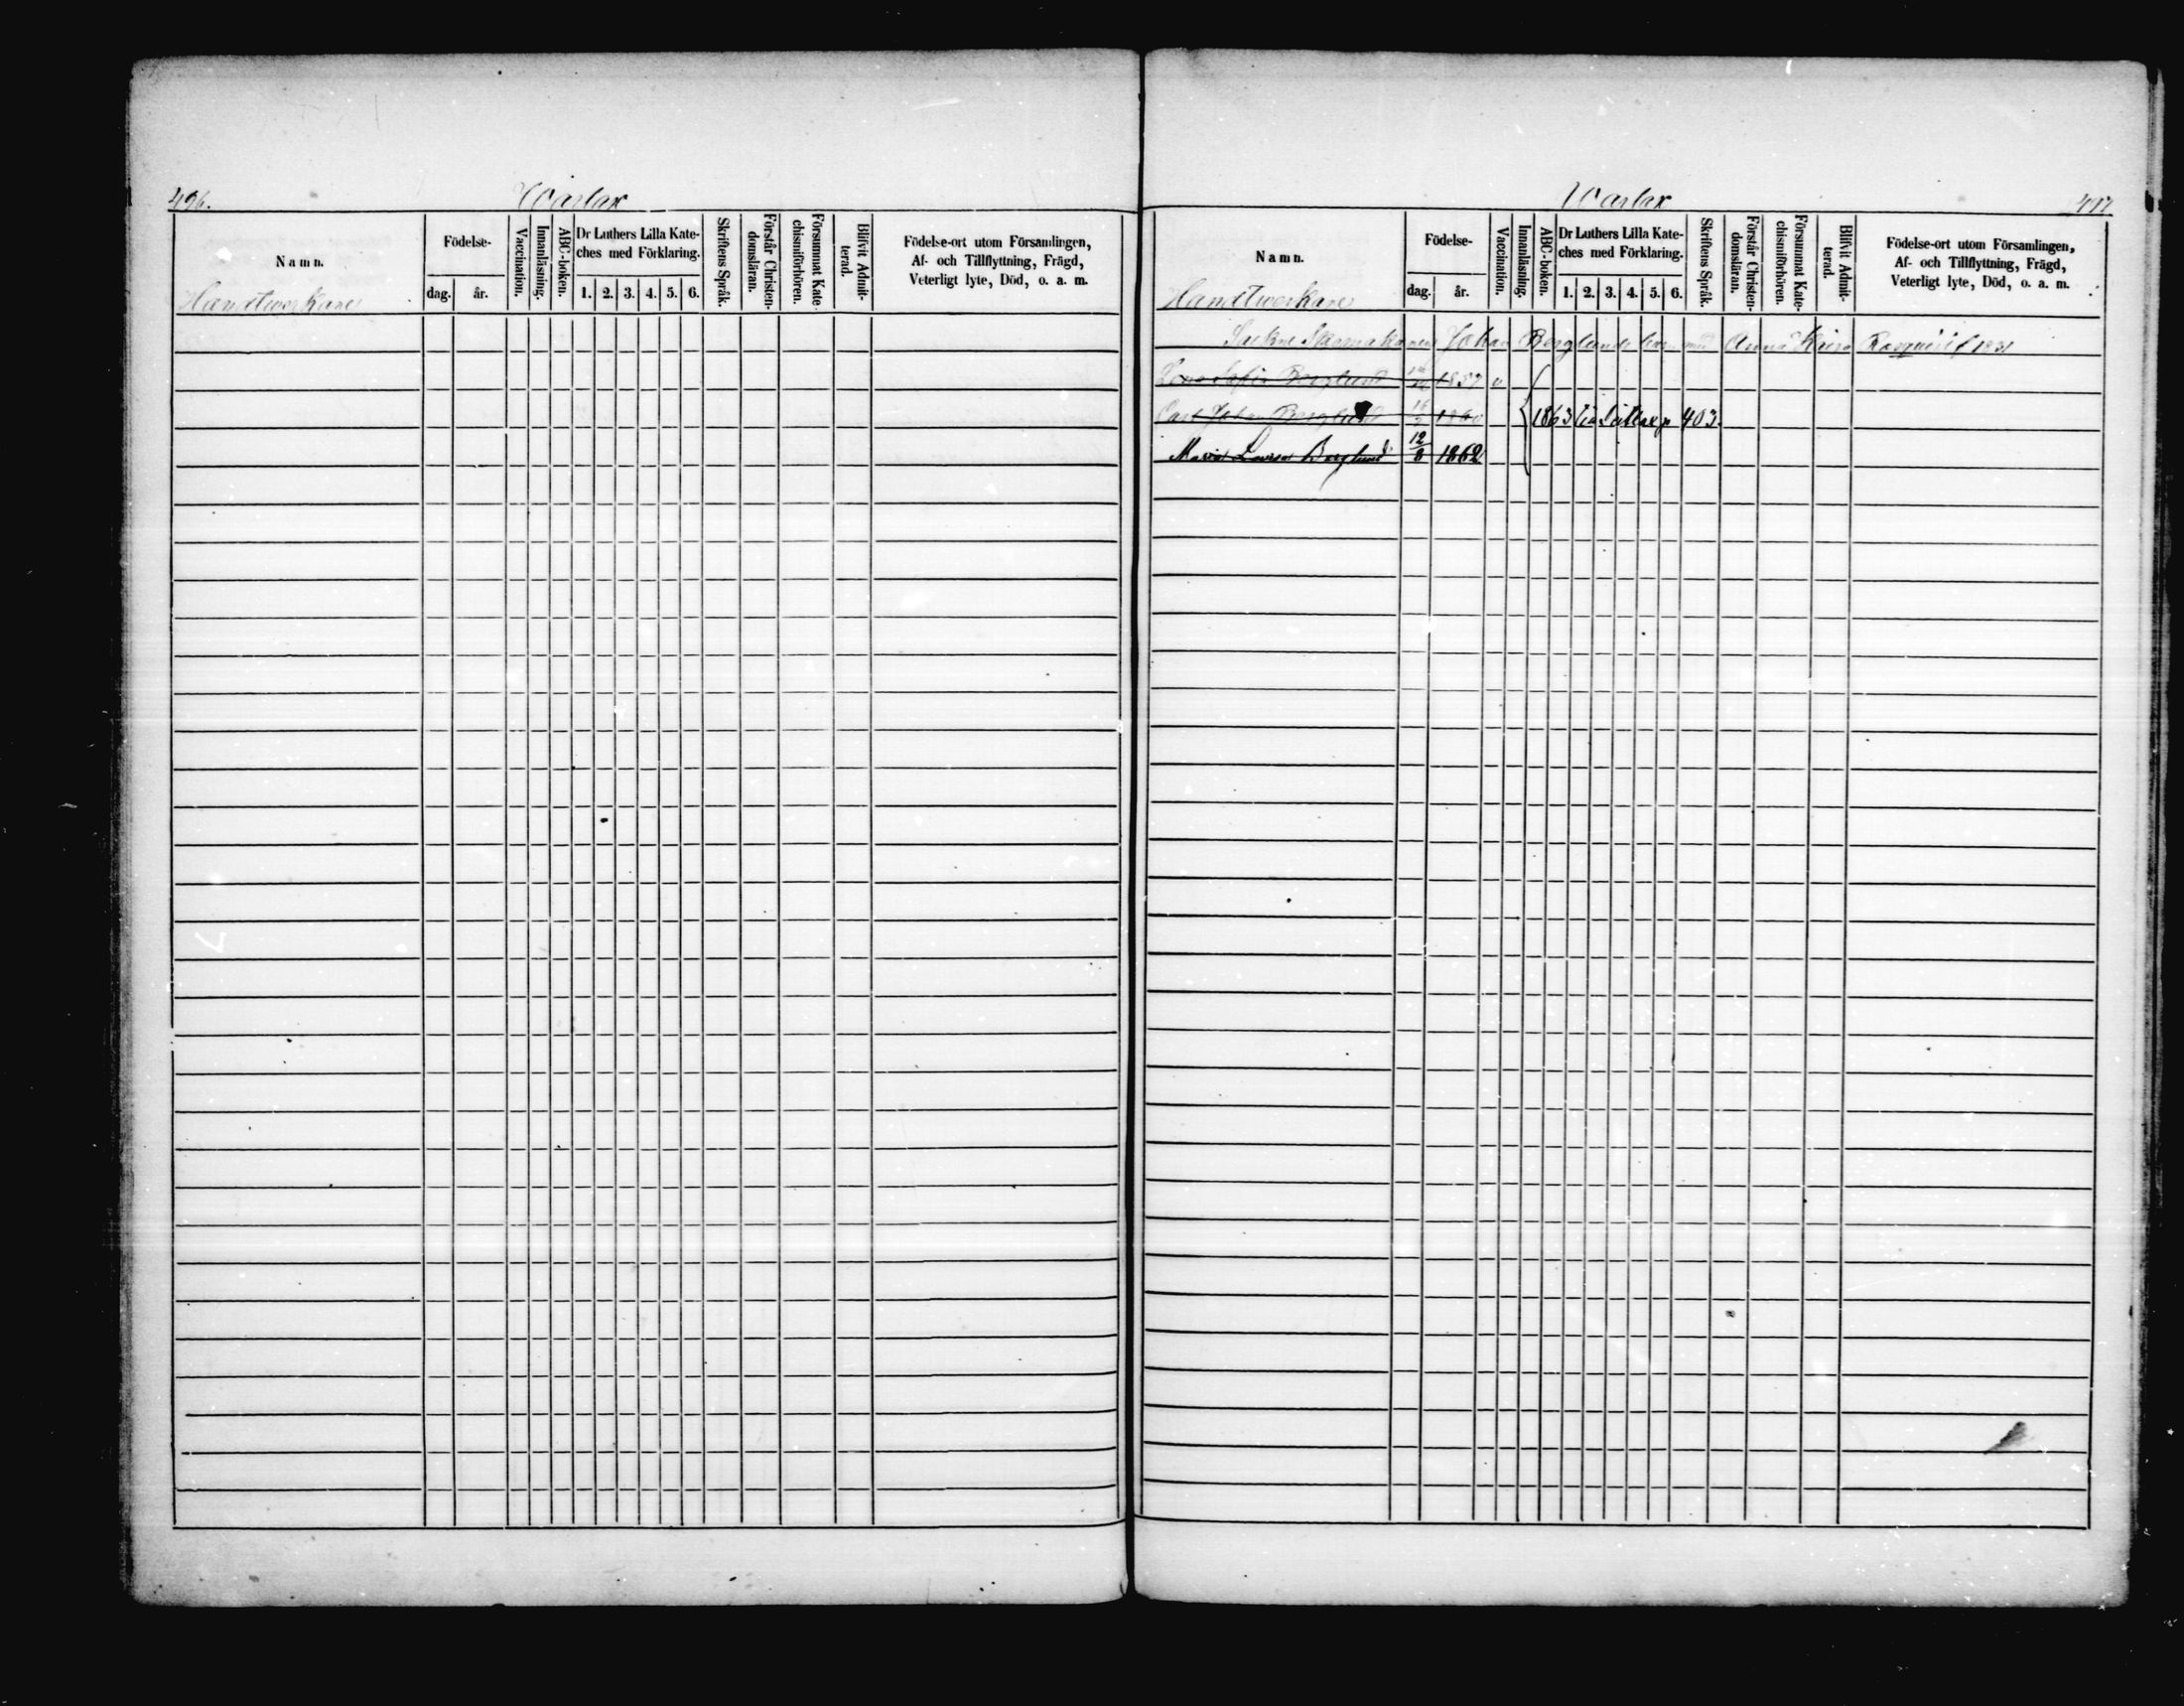 496.
Warlax
Namn.
Födelse-
dag.
år.
Vaccination.
Innanläsning.
ABC-boken.
Dr Luthers Lilla Kate-
ches med Förklaring.
1. 2. 3. 4. 5. 6.
Skriftens Språk.
Förstår Christen-
domsläran.
Försummat Kate-
chismiförhören.
Blifvit Admit-
terad.
Födelse-ort utom Församlingen,
Af- och Tillflyttning, Frägd,
Veterligt lyte, Död, o. a. m.
Handtwerkare
Warlax
497
Namn.
Födelse-
dag.
år.
Vaccination.
Innanläsning.
ABC-boken.
Dr Luthers Lilla Kate-
ches med Förklaring.
1. 2. 3. 4. 5. 6.
Skriftens Språk.
Förstår Christen-
domsläran.
Försummat Kate-
chismiförhören.
Blifvit Admit-
terad.
Födelse-ort utom Församlingen,
Af- och Tillflyttning, Frägd,
Veterligt lyte, Död, o. a. m.
Handtwerkare
Johan Berglunds barn med Anna Kajsa
Sofia Berglund 1857 v
Carl Johan Berglund 16 1860
1863 403.
Maria Lovisa Berglund 12/8 1862